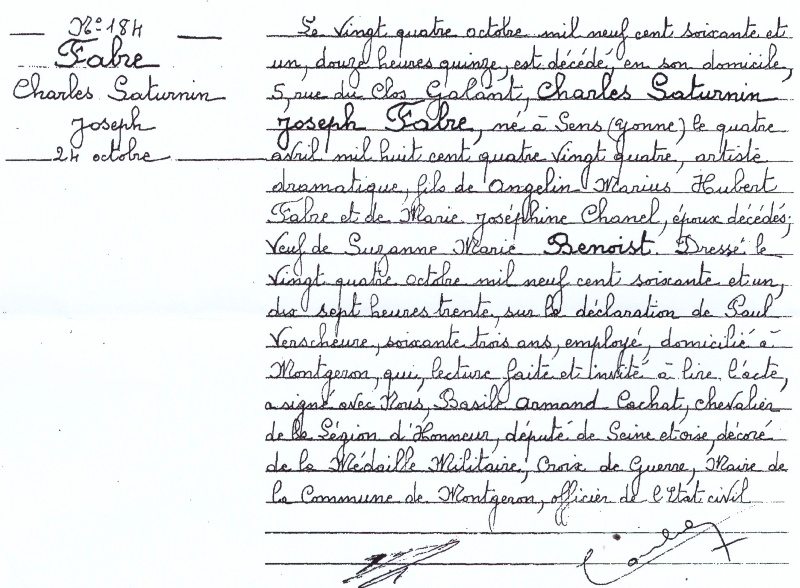 N° 184
Fabre
Charles Saturnin
Joseph
24 octobre
Le vingt quatre octobre mil neuf cent soixante et
un, douze heures quinze, est décédé, en son domicile,
5, rue du Clos Galant, Charles Saturnin
Joseph Fabre, né à Sens (Yonne) le quatre
avril mil huit cent quatre vingt quatre, artiste
dramatique, fils de Angelin Marius Hubert
Fabre et de Marie Joséphine Chanel, époux décédés;
Veuf de Suzanne Marie Benoist. Dressé le
vingt quatre octobre mil neuf cent soixante et un,
dix sept heures trente, sur la déclaration de Paul
Verscheure, soixante trois ans, employé, domicilié à
Montgeron, qui, lecture faite et invité à lire l'acte,
a signé avec Nous, Basile Armand Cachat, chevalier
de la Légion d'Honneur, député de Seine et oise, décoré
de la Médaille Militaire, Croix de Guerre, Maire de
la Commune de Montgeron, officier de l'Etat civil